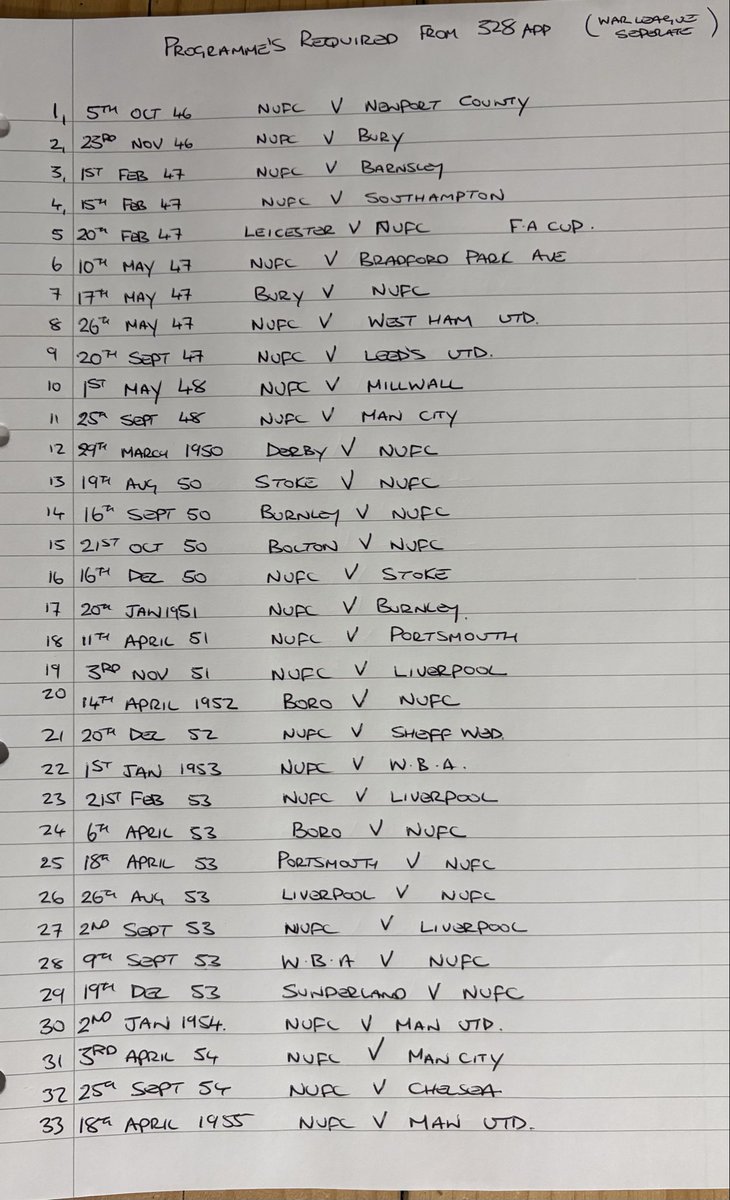 PROGRAMME'S REQUIRED FROM 328 APP (WAR LEAGUE SEPERATE)
1, 5TH OCT 46 NUFC V NEWPORT COUNTY
2, 23RD NOV 46 NUFC V BURY
3, 1ST FEB 47 NUFC V BARNSLEY
4, 15TH FEB 47 NUFC V SOUTHAMPTON
5 20TH FEB 47 LEICESTER V NUFC F.A CUP.
6 10TH MAY 47 NUFC V BRADFORD PARK AVE
7 17TH MAY 47 BURY V NUFC
8 26TH MAY 47 NUFC V WEST HAM UTD.
9 20TH SEPT 47 NUFC V LEED'S UTD.
10 1ST MAY 48 NUFC V MILLWALL
11 25TH SEPT 48 NUFC V MAN CITY
12 29TH MARCH 1950 DERBY V NUFC
13 19TH AUG 50 STOKE V NUFC
14 16TH SEPT 50 BURNLEY V NUFC
15 21ST OCT 50 BOLTON V NUFC
16 16TH DEZ 50 NUFC V STOKE
17 20TH JAN 1951 NUFC V BURNLEY.
18 11TH APRIL 51 NUFC V PORTSMOUTH
19 3RD NOV 51 NUFC V LIVERPOOL
20 14TH APRIL 1952 BORO V NUFC
21 20TH DEZ 52 NUFC V SHEFF WED.
22 1ST JAN 1953 NUFC V W.B.A.
23 21ST FEB 53 NUFC V LIVERPOOL
24 6TH APRIL 53 BORO V NUFC
25 18TH APRIL 53 PORTSMOUTH V NUFC
26 26TH AUG 53 LIVERPOOL V NUFC
27 2ND SEPT 53 NUFC V LIVERPOOL
28 9TH SEPT 53 W.B.A V NUFC
29 19TH DEZ 53 SUNDERLAND V NUFC
30 2ND JAN 1954. NUFC V MAN UTD.
31 3RD APRIL 54 NUFC V MAN CITY
32 25TH SEPT 54 NUFC V CHELSEA
33 18TH APRIL 1955 NUFC V MAN UTD.